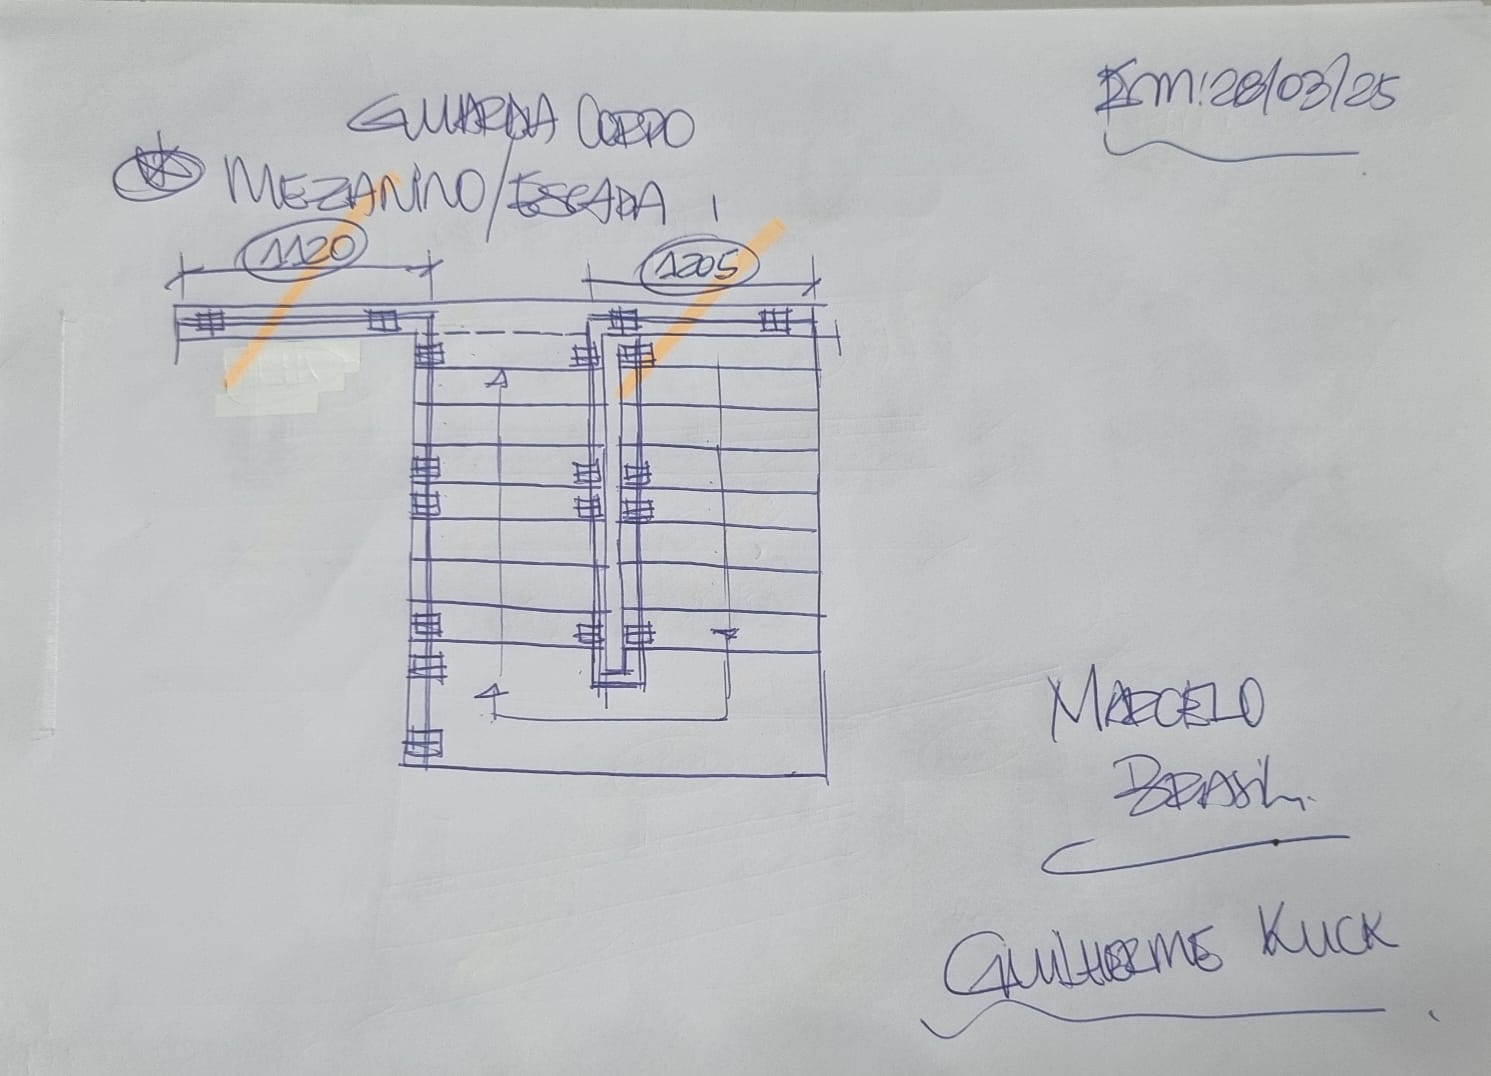 GUARDA CORPO
MEZANINO/ESCADA
Em: 28/03/25
1120
1205
MARCELO
BRASIL.
GUILHERME KUCK